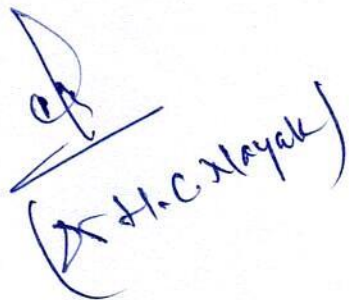 (Dr H.C. Nayak)